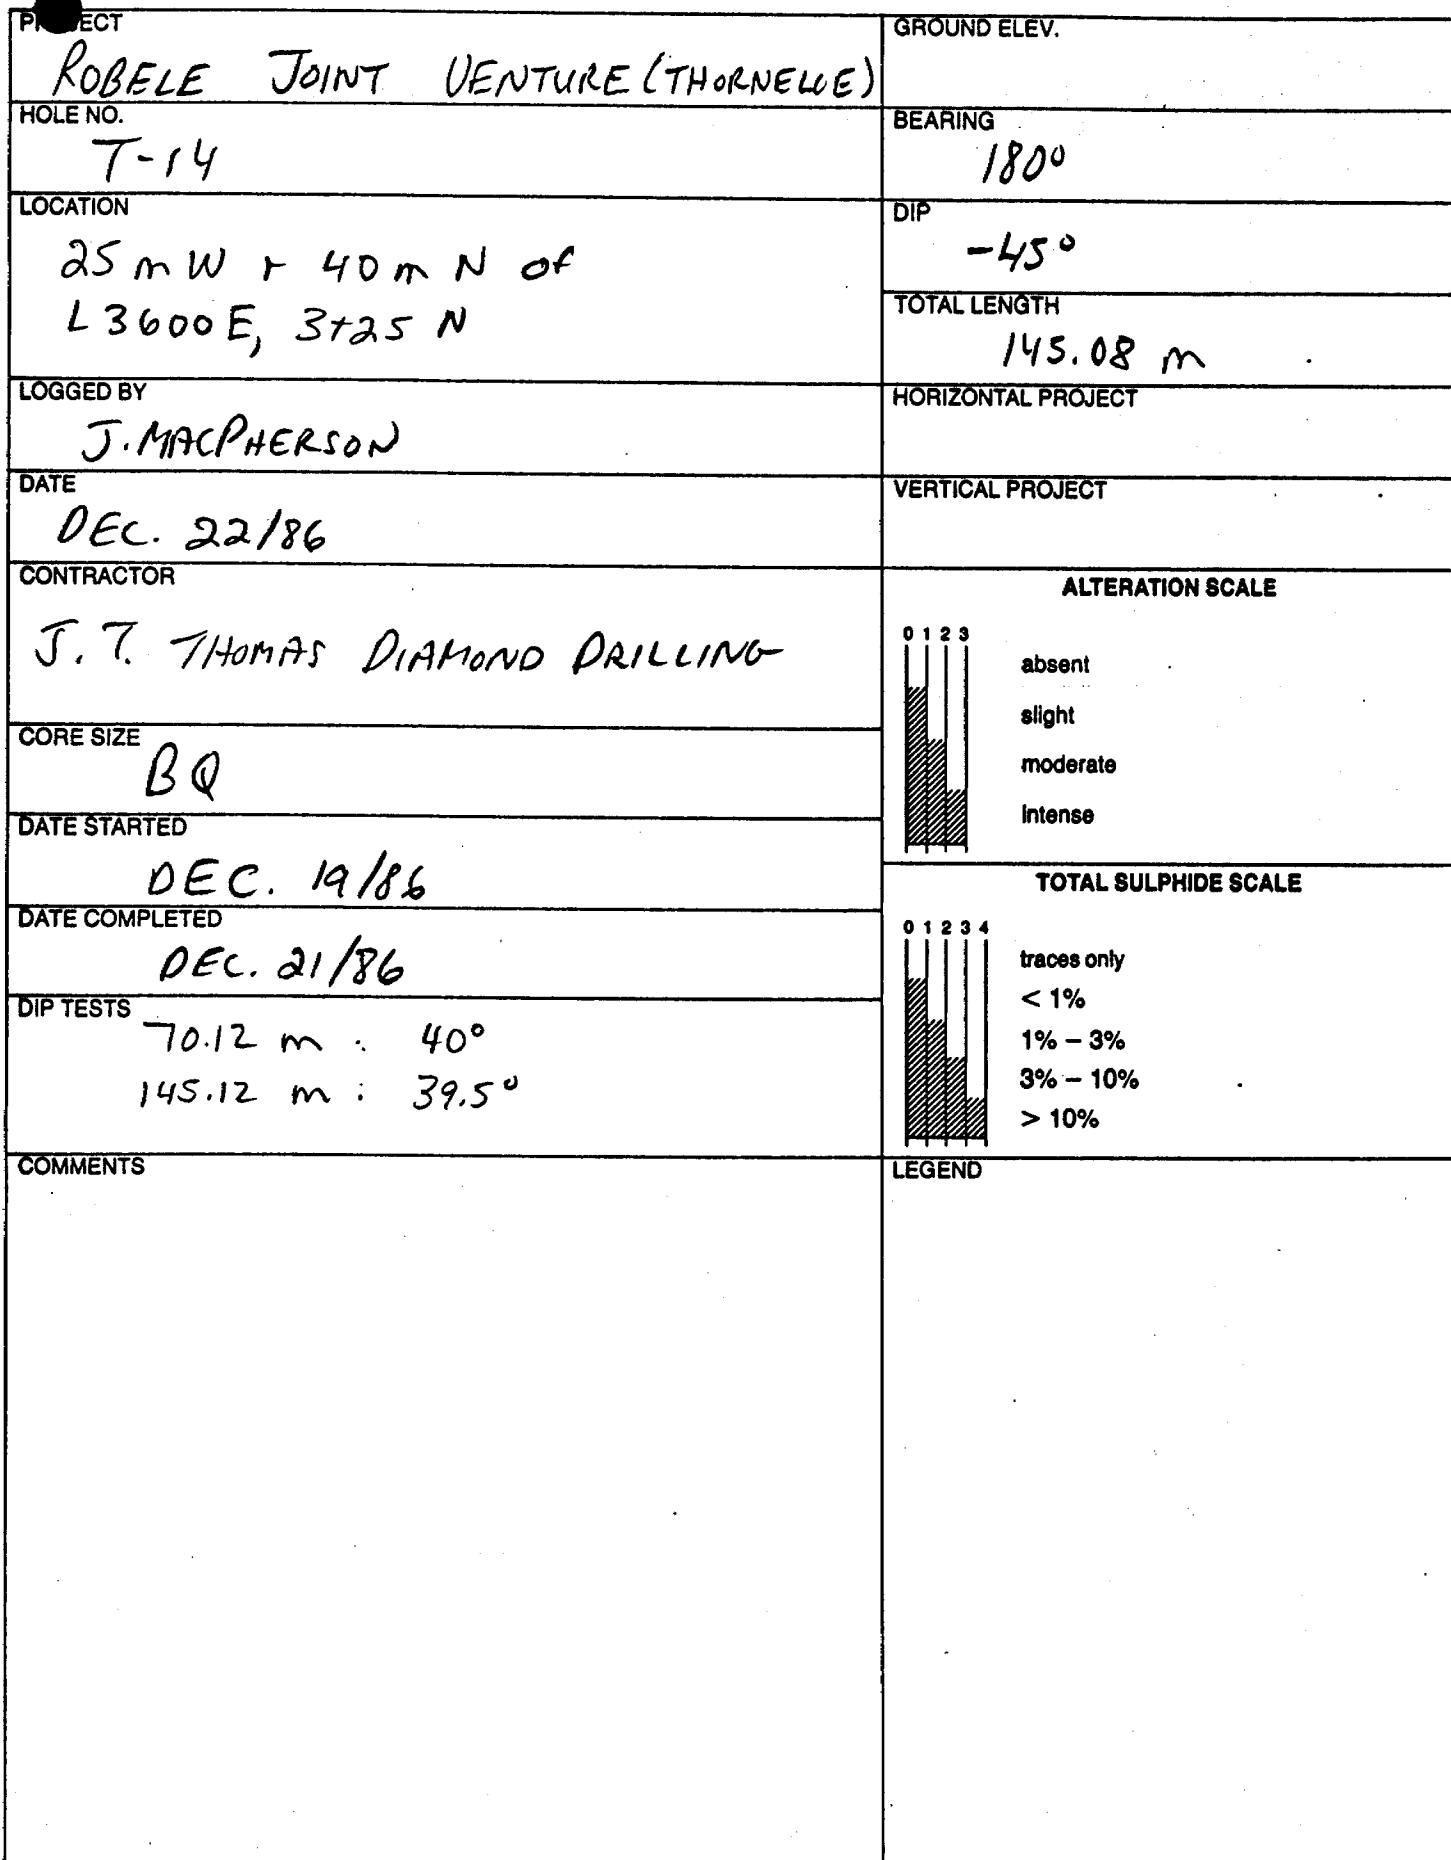 PROJECT
ROBELE JOINT VENTURE (THORNELOE)
HOLE NO.
T-14
LOCATION
25 m W + 40 m N of
L3600E, 3+25 N
LOGGED BY
J. MACPHERSON
DATE
DEC. 22/86
CONTRACTOR
J. T. THOMAS DIAMOND DRILLING
CORE SIZE
BQ
DATE STARTED
DEC. 19/86
DATE COMPLETED
DEC. 21/86
DIP TESTS
70.12 m : 40°
145.12 m : 39.5°
COMMENTS
GROUND ELEV.
BEARING
180°
DIP
-45°
TOTAL LENGTH
145.08 m
HORIZONTAL PROJECT
VERTICAL PROJECT
ALTERATION SCALE
0 1 2 3
absent
slight
moderate
intense
TOTAL SULPHIDE SCALE
0 1 2 3 4
traces only
< 1%
1% – 3%
3% – 10%
> 10%
LEGEND